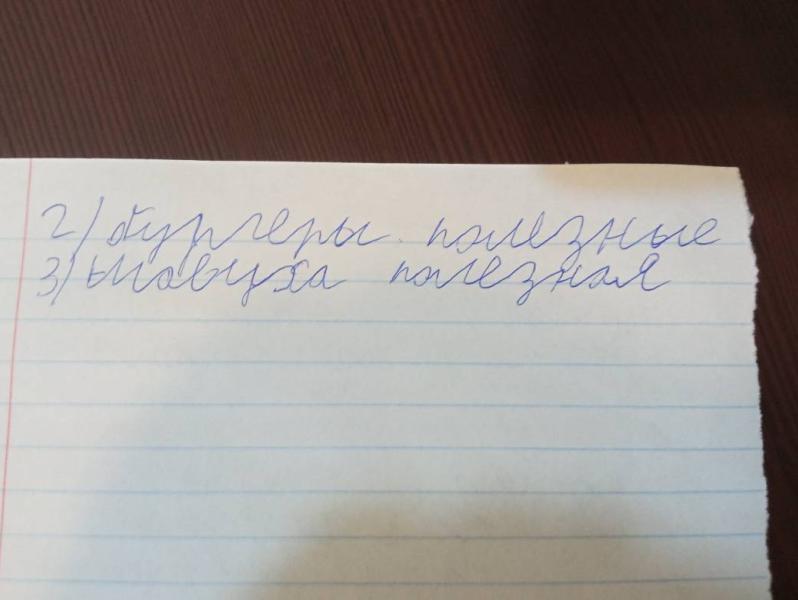 2) бургеры полезные
3) шавуха полезная